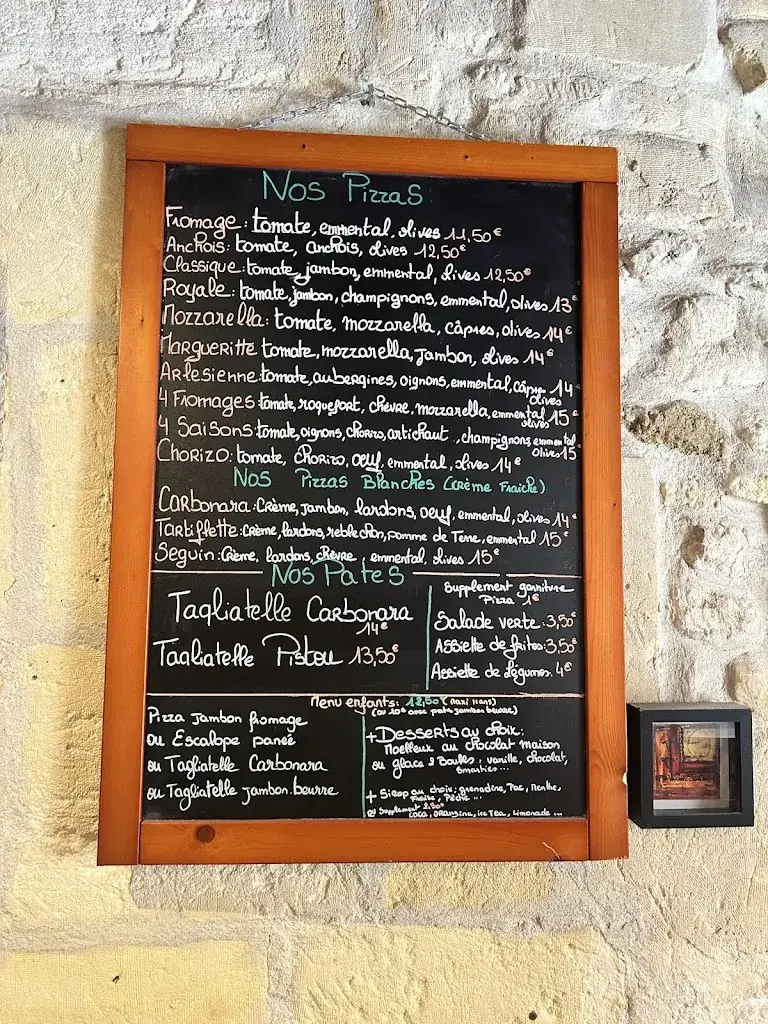 Nos Pizzas
Fromage : tomate, emmental, olives 11,50€
Anchois : tomate, anchois, olives 12,50€
Classique : tomate, jambon, emmental, olives 12,50€
Royale : tomate, jambon, champignons, emmental, olives 13€
Mozzarella : tomate, mozzarella, câpres, olives 14€
Margueritte tomate, mozzarella, jambon, olives 14€
Arlesienne tomate, aubergines, oignons, emmental, câpres olives 14€
4 Fromages tomate, roquefort, chèvre, mozzarella, emmental olives 15€
4 Saisons tomate, oignons, chorizo, artichaut, champignons, emmental olives 15
Chorizo : tomate, chorizo, oeuf, emmental, olives 14€
Nos Pizzas Blanches (Crème Fraîche)
Carbonara : Crème, jambon, lardons, oeuf, emmental, olives 14€
Tartiflette : crème, lardons, reblochon, pomme de Terre, emmental 15€
Seguin : Crème, lardons, chèvre, emmental, olives 15€
Nos Pates
Tagliatelle Carbonara
14€
Tagliatelle Pistou 13,50€
Supplement garniture
Pizza 1€
Salade verte : 3,50€
Assiette de frites : 3,50€
Assiette de légumes. 4€
Menu enfants : 12,50€ (maxi 11 ans)
(ou 10€ avec pate jambon beurre)
Pizza jambon fromage
ou Escalope panée
ou Tagliatelle Carbonara
ou Tagliatelle jambon.beurre
+ Desserts au choix :
Moelleux au chocolat maison
ou glace 2 Boules : vanille, chocolat,
Smarties ...
+ Sirop au choix : grenadine, Pac, Menthe,
Fraise, Pêche ...
ou Supplement 2,50€
Coca, orangina, ice Tea, limonade ...